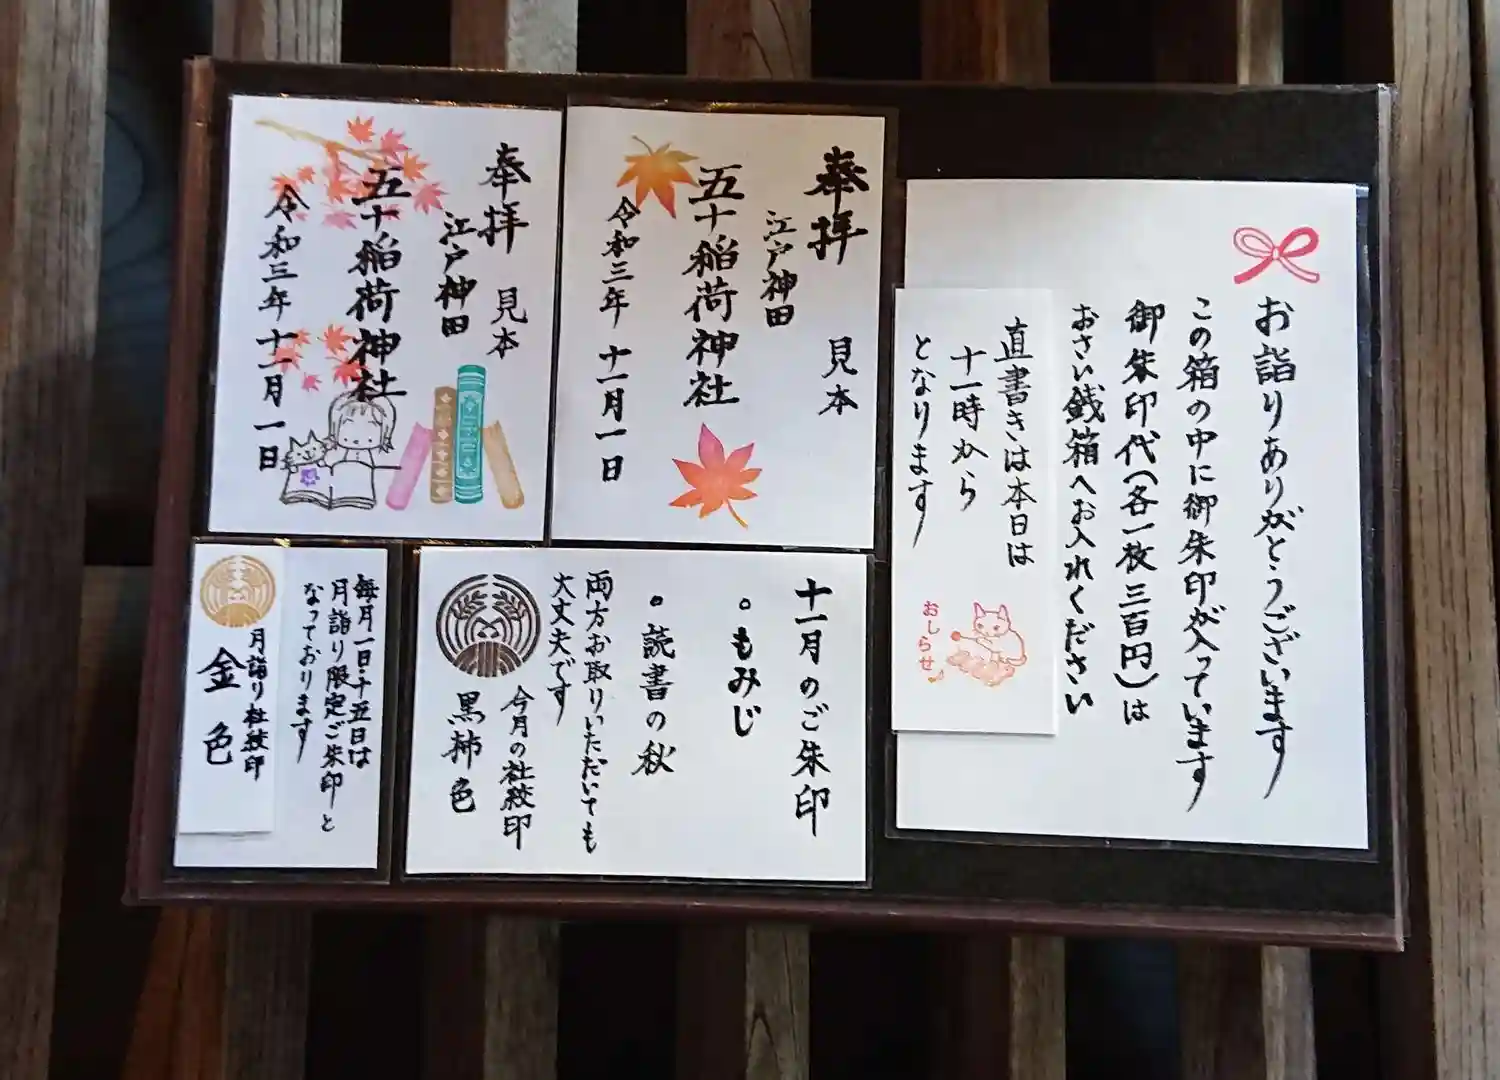 お詣りありがとうございます
この箱の中に御朱印が入っています
御朱印代(各一枚三百円)は
おさい銭箱へお入れください
直書きは本日は
十一時から
となります
おしらせ
奉拝
見本
江戸神田
五十稲荷神社
令和三年十一月一日
奉拝
見本
江戸神田
五十稲荷神社
令和三年十一月一日
十一月のご朱印
。もみじ
。読書の秋
両方お取りいただいても
大丈夫です
今月の社紋印
黒柿色
毎月一日・十五日は
月詣り限定ご朱印と
なっております
月詣り社紋印
金色